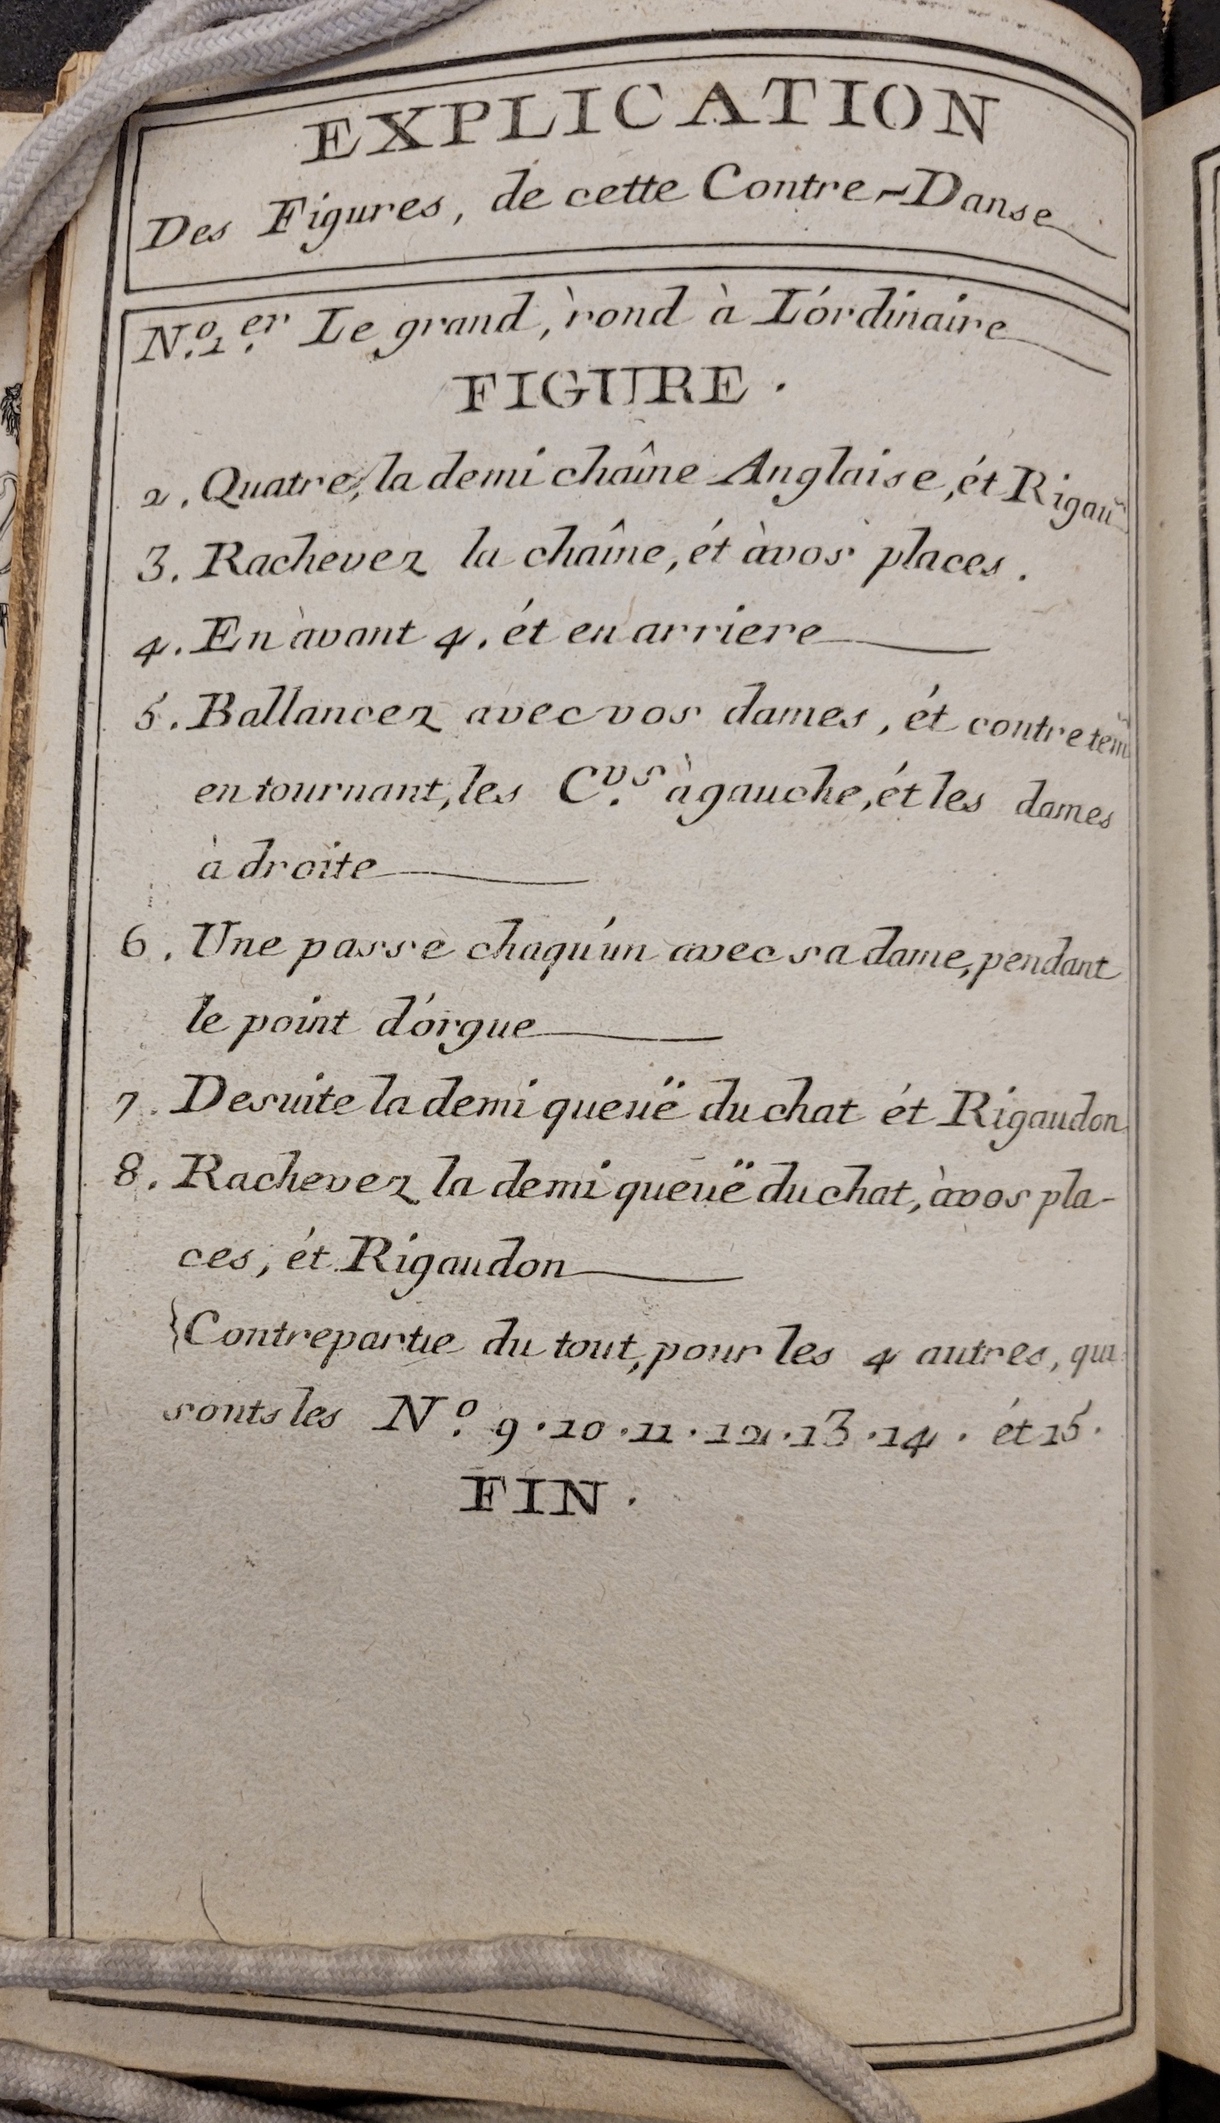 EXPLICATION
Des Figures, de cette Contre-Danse
N.º 1.er Le grand, rond à L'órdinaire
FIGURE.
2. Quatre, la demi chaîne Anglaise, ét Rigau
3. Rachevez la chaîne, ét àvos places.
4. En àvant 4. ét en arriere
5. Ballancez avec vos dames, ét contretem
en tournant, les C.vs à gauche, ét les dames
à droite
6. Une passe chaqu'un avec sa dame, pendant
le point d'órgue
7. Desuite la demi queuë du chat ét Rigaudon
8. Rachevez la demi queuë du chat, àvos pla-
ces, ét Rigaudon
{Contrepartie du tout, pour les 4 autres, qui
sonts les N.º 9. 10. 11. 12. 13. 14. ét 15.
FIN.